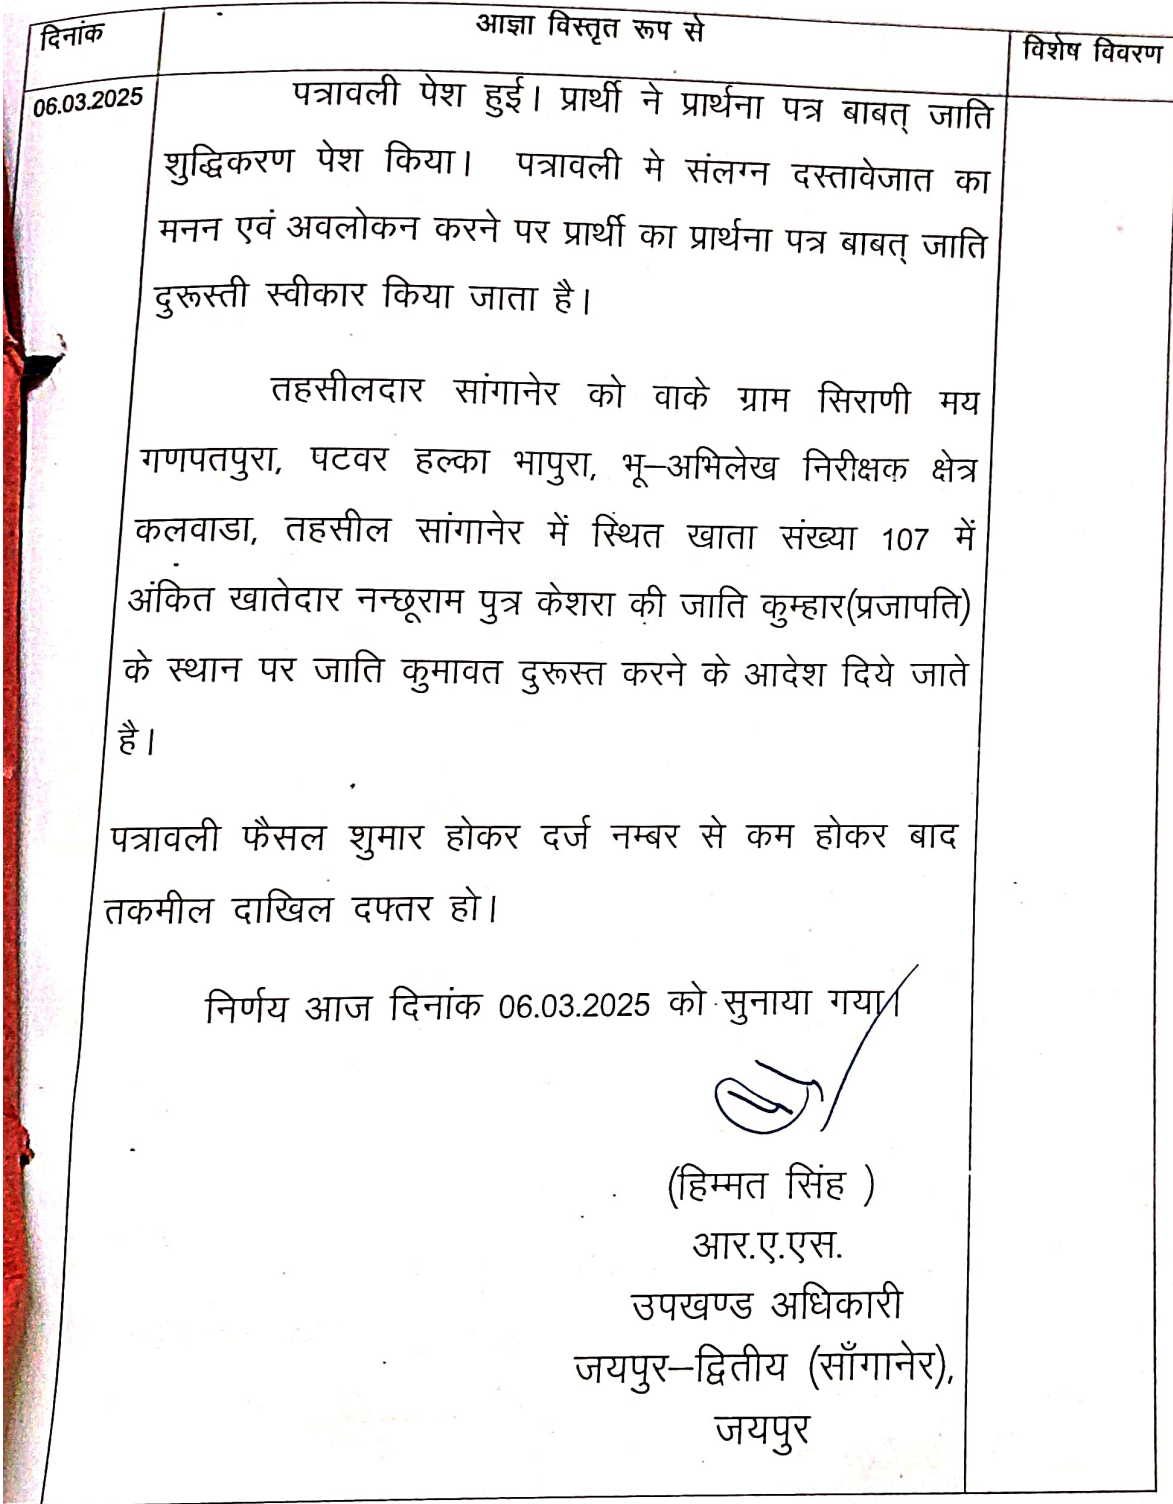 दिनांक
आज्ञा विस्तृत रूप से
विशेष विवरण
06.03.2025
पत्रावली पेश हुई। प्रार्थी ने प्रार्थना पत्र बाबत् जाति
शुद्धिकरण पेश किया। पत्रावली मे संलग्न दस्तावेजात का
मनन एवं अवलोकन करने पर प्रार्थी का प्रार्थना पत्र बाबत् जाति
दुरूस्ती स्वीकार किया जाता है।
तहसीलदार सांगानेर को वाके ग्राम सिराणी मय
गणपतपुरा, पटवर हल्का भापुरा, भू–अभिलेख निरीक्षक क्षेत्र
कलवाडा, तहसील सांगानेर में स्थित खाता संख्या 107 में
अंकित खातेदार नन्छूराम पुत्र केशरा की जाति कुम्हार(प्रजापति)
के स्थान पर जाति कुमावत दुरूस्त करने के आदेश दिये जाते
है।
पत्रावली फैसल शुमार होकर दर्ज नम्बर से कम होकर बाद
तकमील दाखिल दफ्तर हो।
निर्णय आज दिनांक 06.03.2025 को सुनाया गया।
(हिम्मत सिंह )
आर.ए.एस.
उपखण्ड अधिकारी
जयपुर–द्वितीय (साँगानेर),
जयपुर